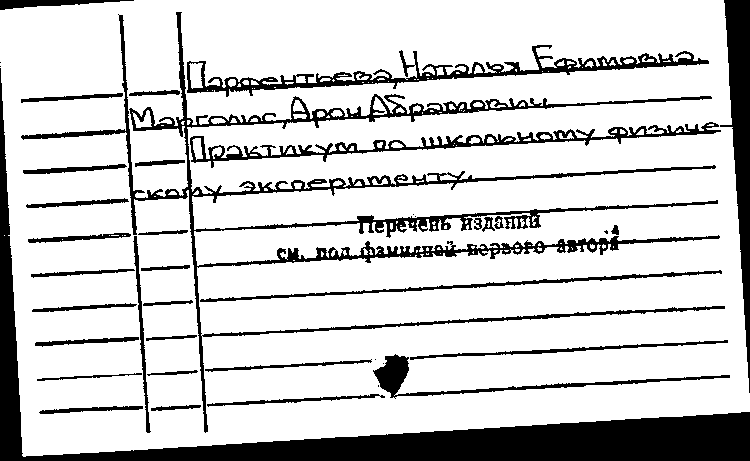 Парфентьева, Наталья Ефимовна.
Марголис, Арон Абрамович
Практикум по школьному физиче-
скому эксперименту.
Перечень изданий
см. под фамилией первого автора